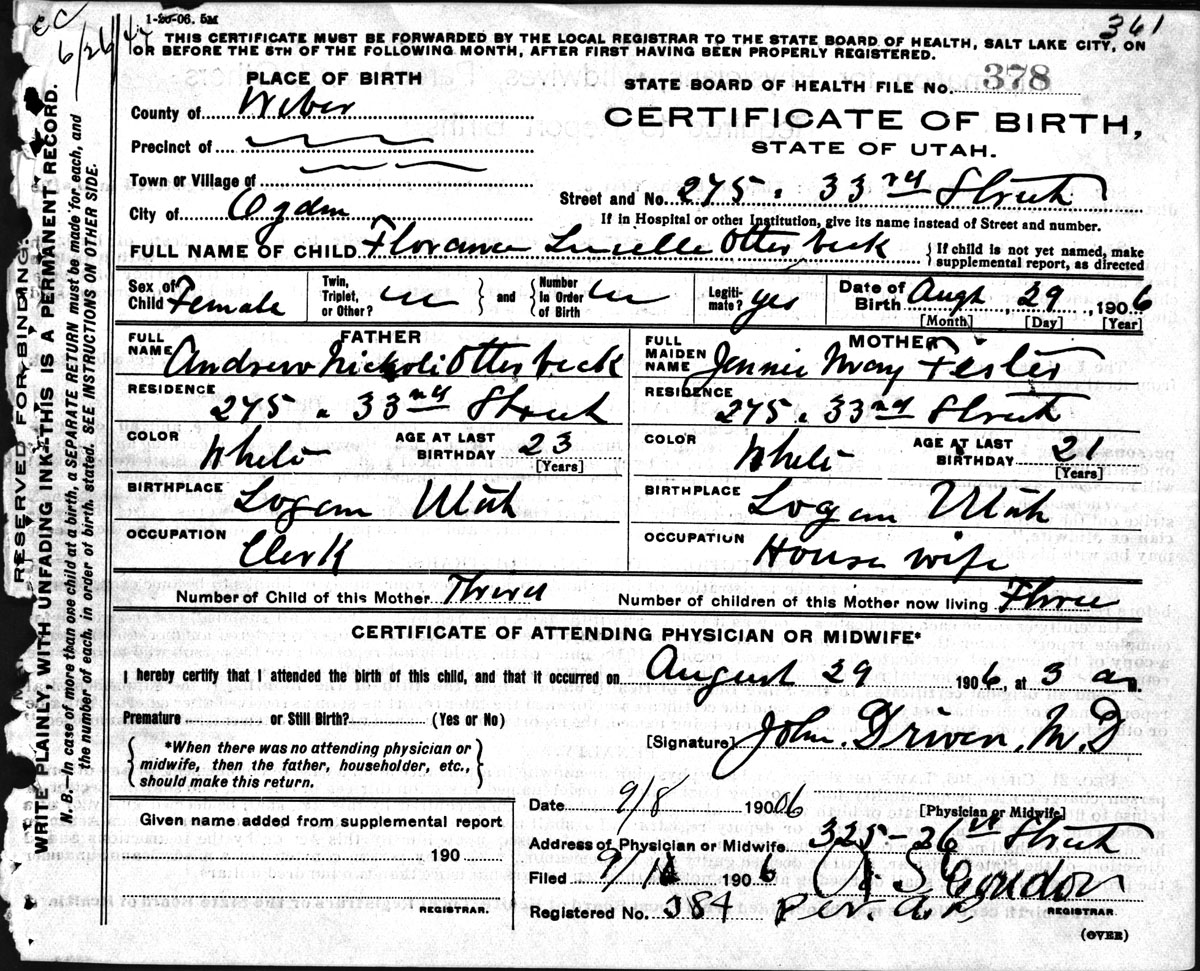 EC
6/26/47
1-20-06. 5M
361
THIS CERTIFICATE MUST BE FORWARDED BY THE LOCAL REGISTRAR TO THE STATE BOARD OF HEALTH, SALT LAKE CITY, ON
OR BEFORE THE 5TH OF THE FOLLOWING MONTH, AFTER FIRST HAVING BEEN PROPERLY REGISTERED.
RESERVED FOR BINDING.
WRITE PLAINLY, WITH UNFADING INK—THIS IS A PERMANENT RECORD.
N. B.—In case of more than one child at a birth, a SEPARATE RETURN must be made for each, and
the number of each, in order of birth, stated. SEE INSTRUCTIONS ON OTHER SIDE.
PLACE OF BIRTH
STATE BOARD OF HEALTH FILE No. 378
County of Weber
CERTIFICATE OF BIRTH,
Precinct of
STATE OF UTAH.
Town or Village of
Street and No. 275. 33rd Street
City of Ogden
If in Hospital or other Institution, give its name instead of Street and number.
FULL NAME OF CHILD Florance Lucielle Otterbeck
{ If child is not yet named, make
supplemental report, as directed
Sex of Child Female
Twin, Triplet, or Other?
and
Number In Order of Birth
Legiti- mate? yes
Date of Birth Augh 29, 1906
[Month] [Day] [Year]
FATHER
MOTHER
FULL NAME Andrew Nickoli Otterbeck
FULL MAIDEN NAME Jennie May Fester
RESIDENCE 275. 33rd Street
RESIDENCE 275. 33rd Street
COLOR White AGE AT LAST BIRTHDAY 23 [Years]
COLOR White AGE AT LAST BIRTHDAY 21 [Years]
BIRTHPLACE Logan Utah
BIRTHPLACE Logan Utah
OCCUPATION Clerk
OCCUPATION House wife
Number of Child of this Mother Third Number of children of this Mother now living Three
CERTIFICATE OF ATTENDING PHYSICIAN OR MIDWIFE*
I hereby certify that I attended the birth of this child, and that it occurred on August 29 1906, at 3 am.
Premature or Still Birth? (Yes or No)
*When there was no attending physician or
midwife, then the father, householder, etc.,
should make this return.
[Signature] John. Driven, M.D
[Physician or Midwife]
Given name added from supplemental report
190
REGISTRAR.
Date 9/8 19006
Address of Physician or Midwife 325-26th Street
Filed 1906
Registered No. 384
REGISTRAR.
(OVER)